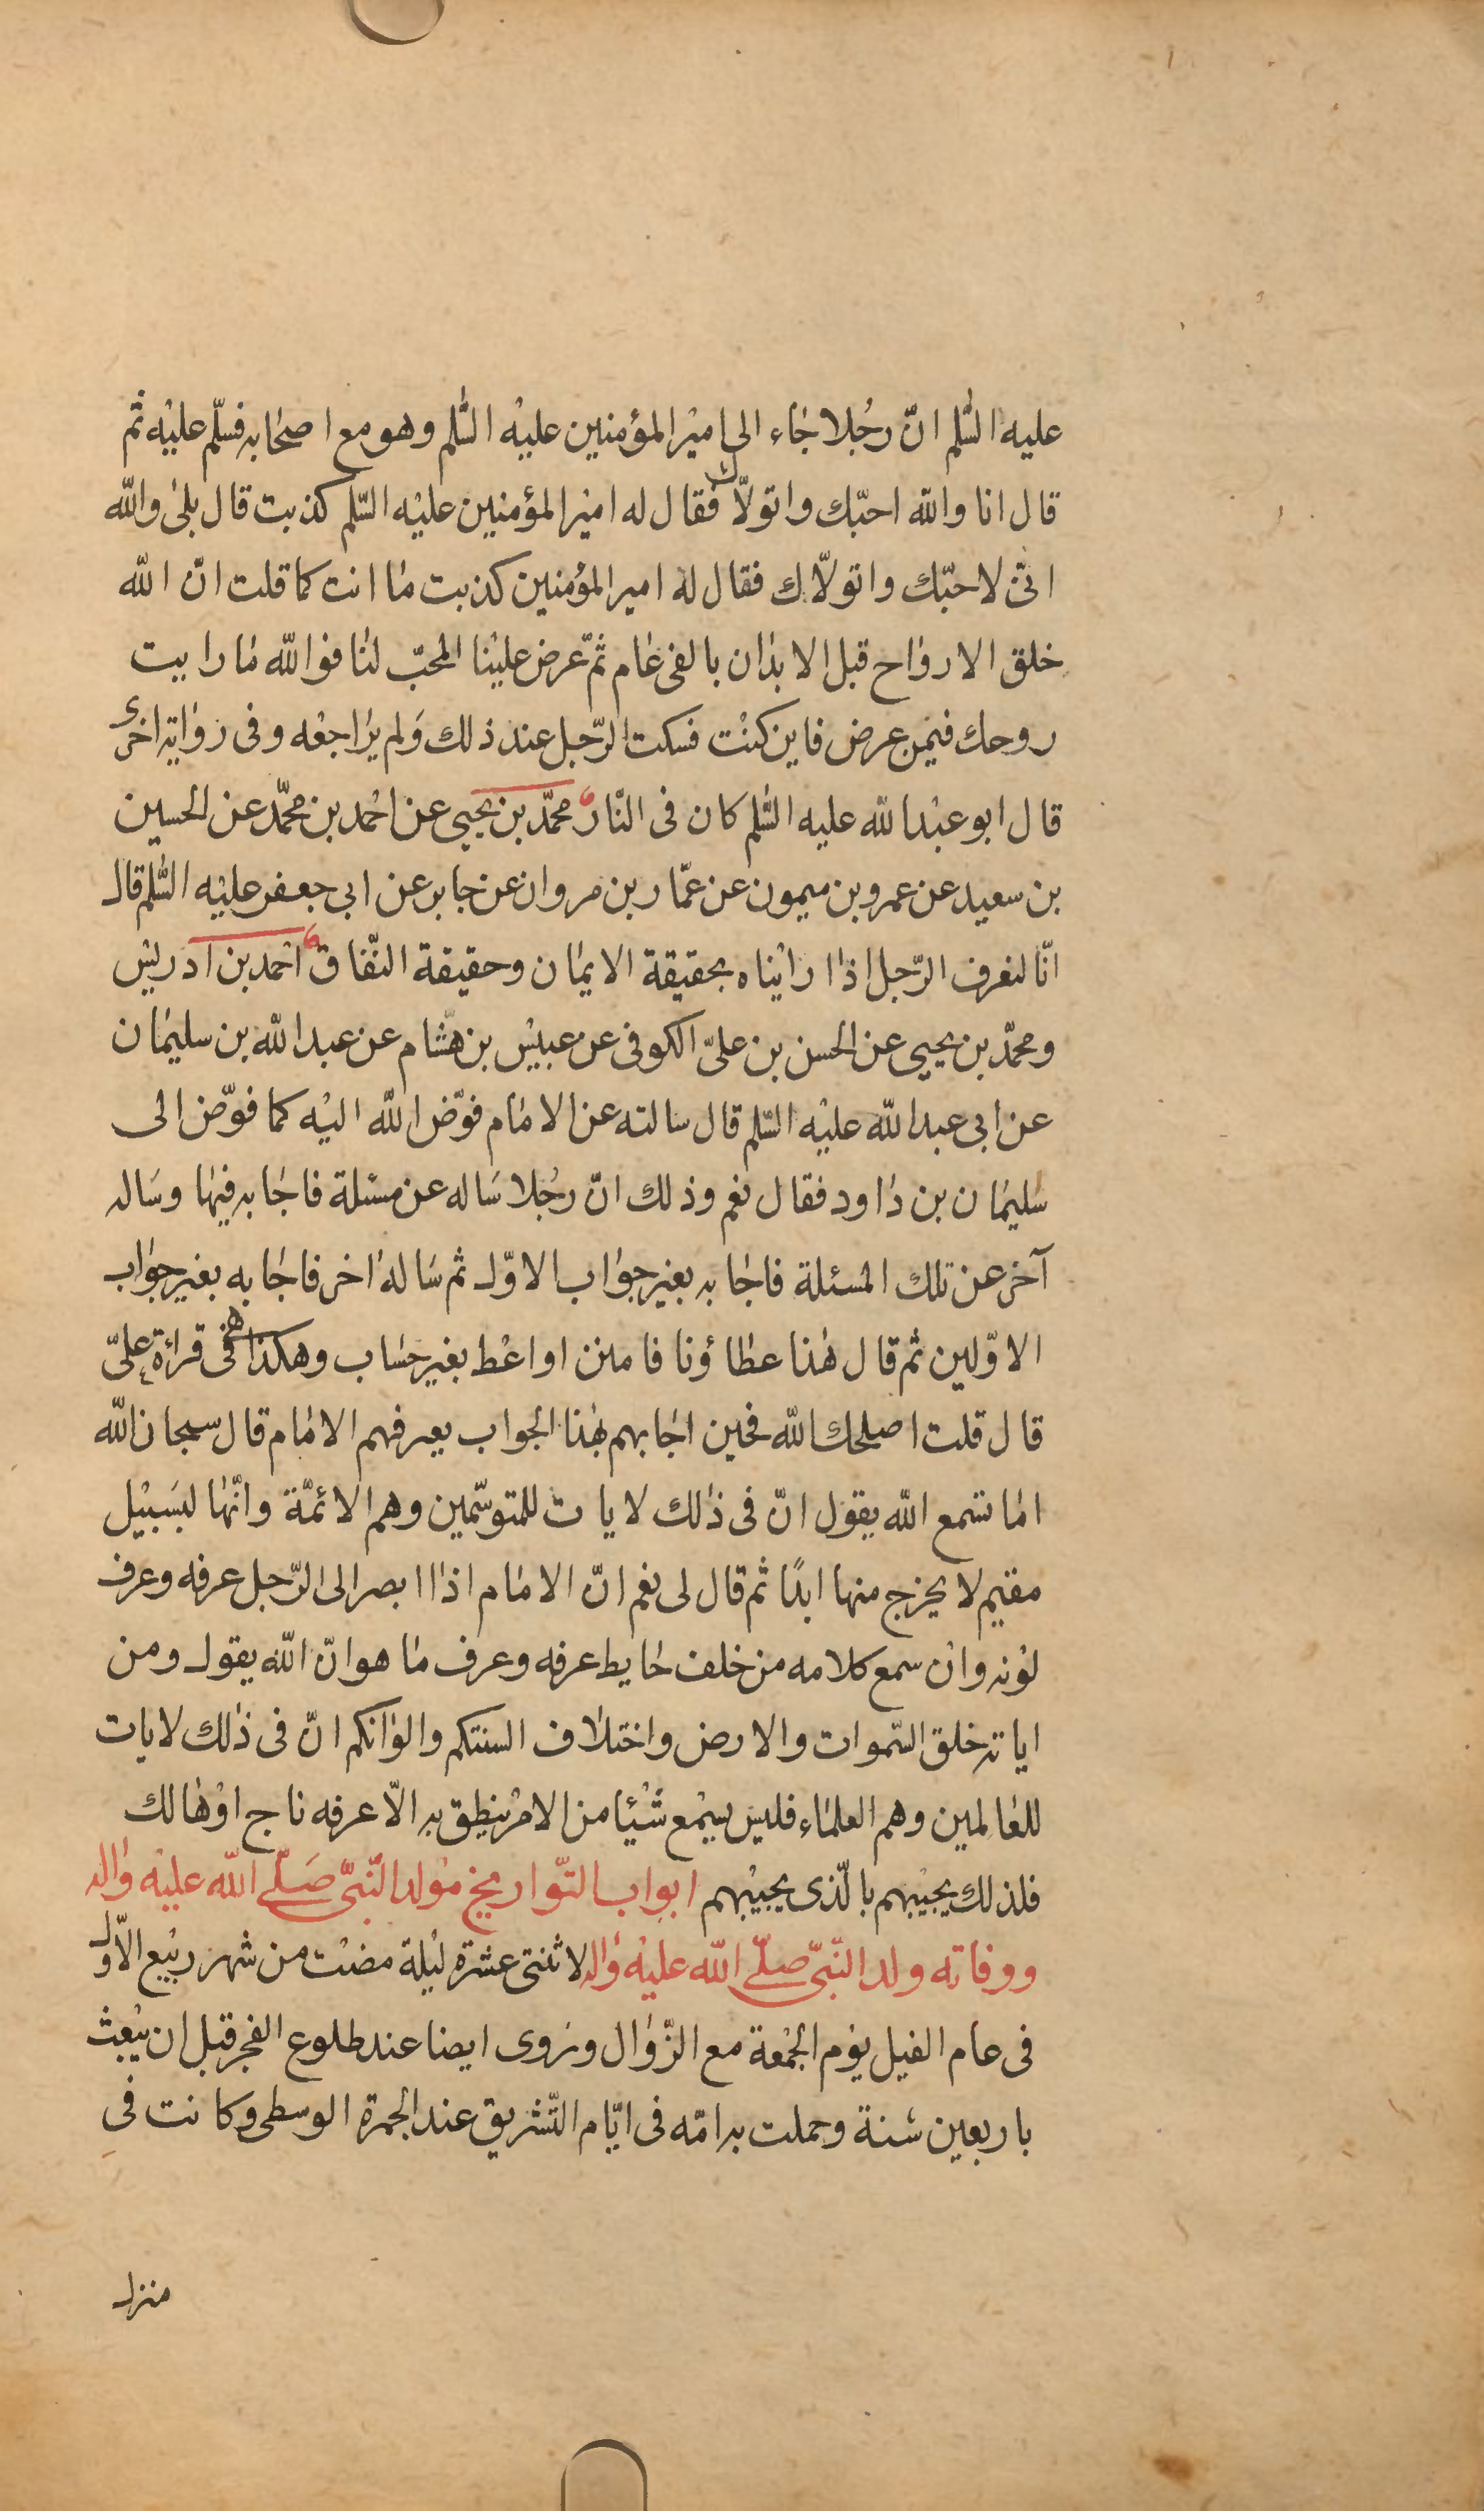 عليه السّلم انّ رجُلا جٰاء الى اميْر المؤمنين عليْه السّلم وهو مع اصحٰابه فسلّم عليْه ثمّ
قال انا والله احبّك واتولّاك فقال له اميْر المؤمنين عليْه السّلم كذبت قال بلىٰ والله
انّى لاحبّك واتولّاك فقال له امير المؤمنين كذبت مٰا انت كما قلت انّ الله
خلق الارواح قبل الابدٰان بالفى عٰام ثمّ عرض عليْنا المحبّ لنٰا فوالله مٰا رايت
روحك فيمن عرض فاين كنْت فسكت الرّجل عند ذلك ولم يرٰاجعْه وفى روٰاية اخرىٰ
قال ابو عبْد الله عليه السّلم كان فى النّار محمّد بن يحيى عن احْمد بن محمّد عن الحسين
بن سعيد عن عمرو بن ميمون عن عمّار بن مروان عن جابر عن ابى جعفر عليْه السّلم قال
انّا لنعرف الرّجل اذا رايْناه بحقيقة الايمٰان وحقيقة النّفاق احْمد بن ادريْس
ومحمّد بن يحيى عن الحسن بن علىّ الكوفى عن عبيْس بن هشام عن عبد الله بن سليمٰان
عن ابى عبد الله عليْه السّلم قال سالته عن الامٰام فوّض الله اليْه كما فوّض الى
سُليمٰان بن دٰاود فقال نعم وذلك انّ رجُلا سَاله عن مسئلة فاجٰابه فيهٰا وسَاله
آخر عن تلك المسئلة فاجٰابه بغير جوٰاب الاوّل ثم سَاله اٰخر فاجٰابه بغير جوٰاب
الاوّلين ثم قال هٰذا عطاؤنا فامنن او اعْط بغير حسٰاب وهكذا هى فى قراءة علىّ
قال قلت اصلحك الله فحين اجٰابهم بهٰذا الجواب يعرفهم الامٰام قال سبحان الله
امٰا تسمع الله يقول انّ فى ذٰلك لايات للمتوسّمين وهم الائمّة وانّهٰا لبسَبيْل
مقيم لا يخرج منها ابدًا ثم قال لى نعم انّ الامٰام اذا ابصر الى الرّجل عرفه وعرف
لوْنه وانْ سمع كلامه من خلف حٰايط عرفه وعرف مٰا هو انّ الله يقول ومن
اياته خلق السّموات والارض واختلٰاف السنتكم والوٰانكم انّ فى ذٰلك لايات
للعٰالمين وهم العلمٰاء فليس يسْمع شيْئا من الامْر ينطق به الّا عرفه ناج اوْ هٰالك
فلذلك يجيْبهم بالّذى يجيْبهم ابواب التّواريخ موْلد النّبىّ صَلّى الله عليْه واٰله
ووفاته ولد النّبىّ صلّى الله عليْه واٰله لاثنتى عشرة ليْلة مضتْ من شهر ربيْع الاوّل
فى عام الفيل يوْم الجمْعة مع الزّوٰال وروى ايضا عند طلوع الفجر قبل ان يبْعث
باربعين سَنة وحملت به امّه فى ايّام التّشريق عند الجمرة الوسطى وكانت فى
منزل